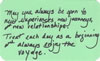 May you always be open to
new experiences new journeys
& new relationships!
Treat each day as a beginning
& always enjoy the
voyage.